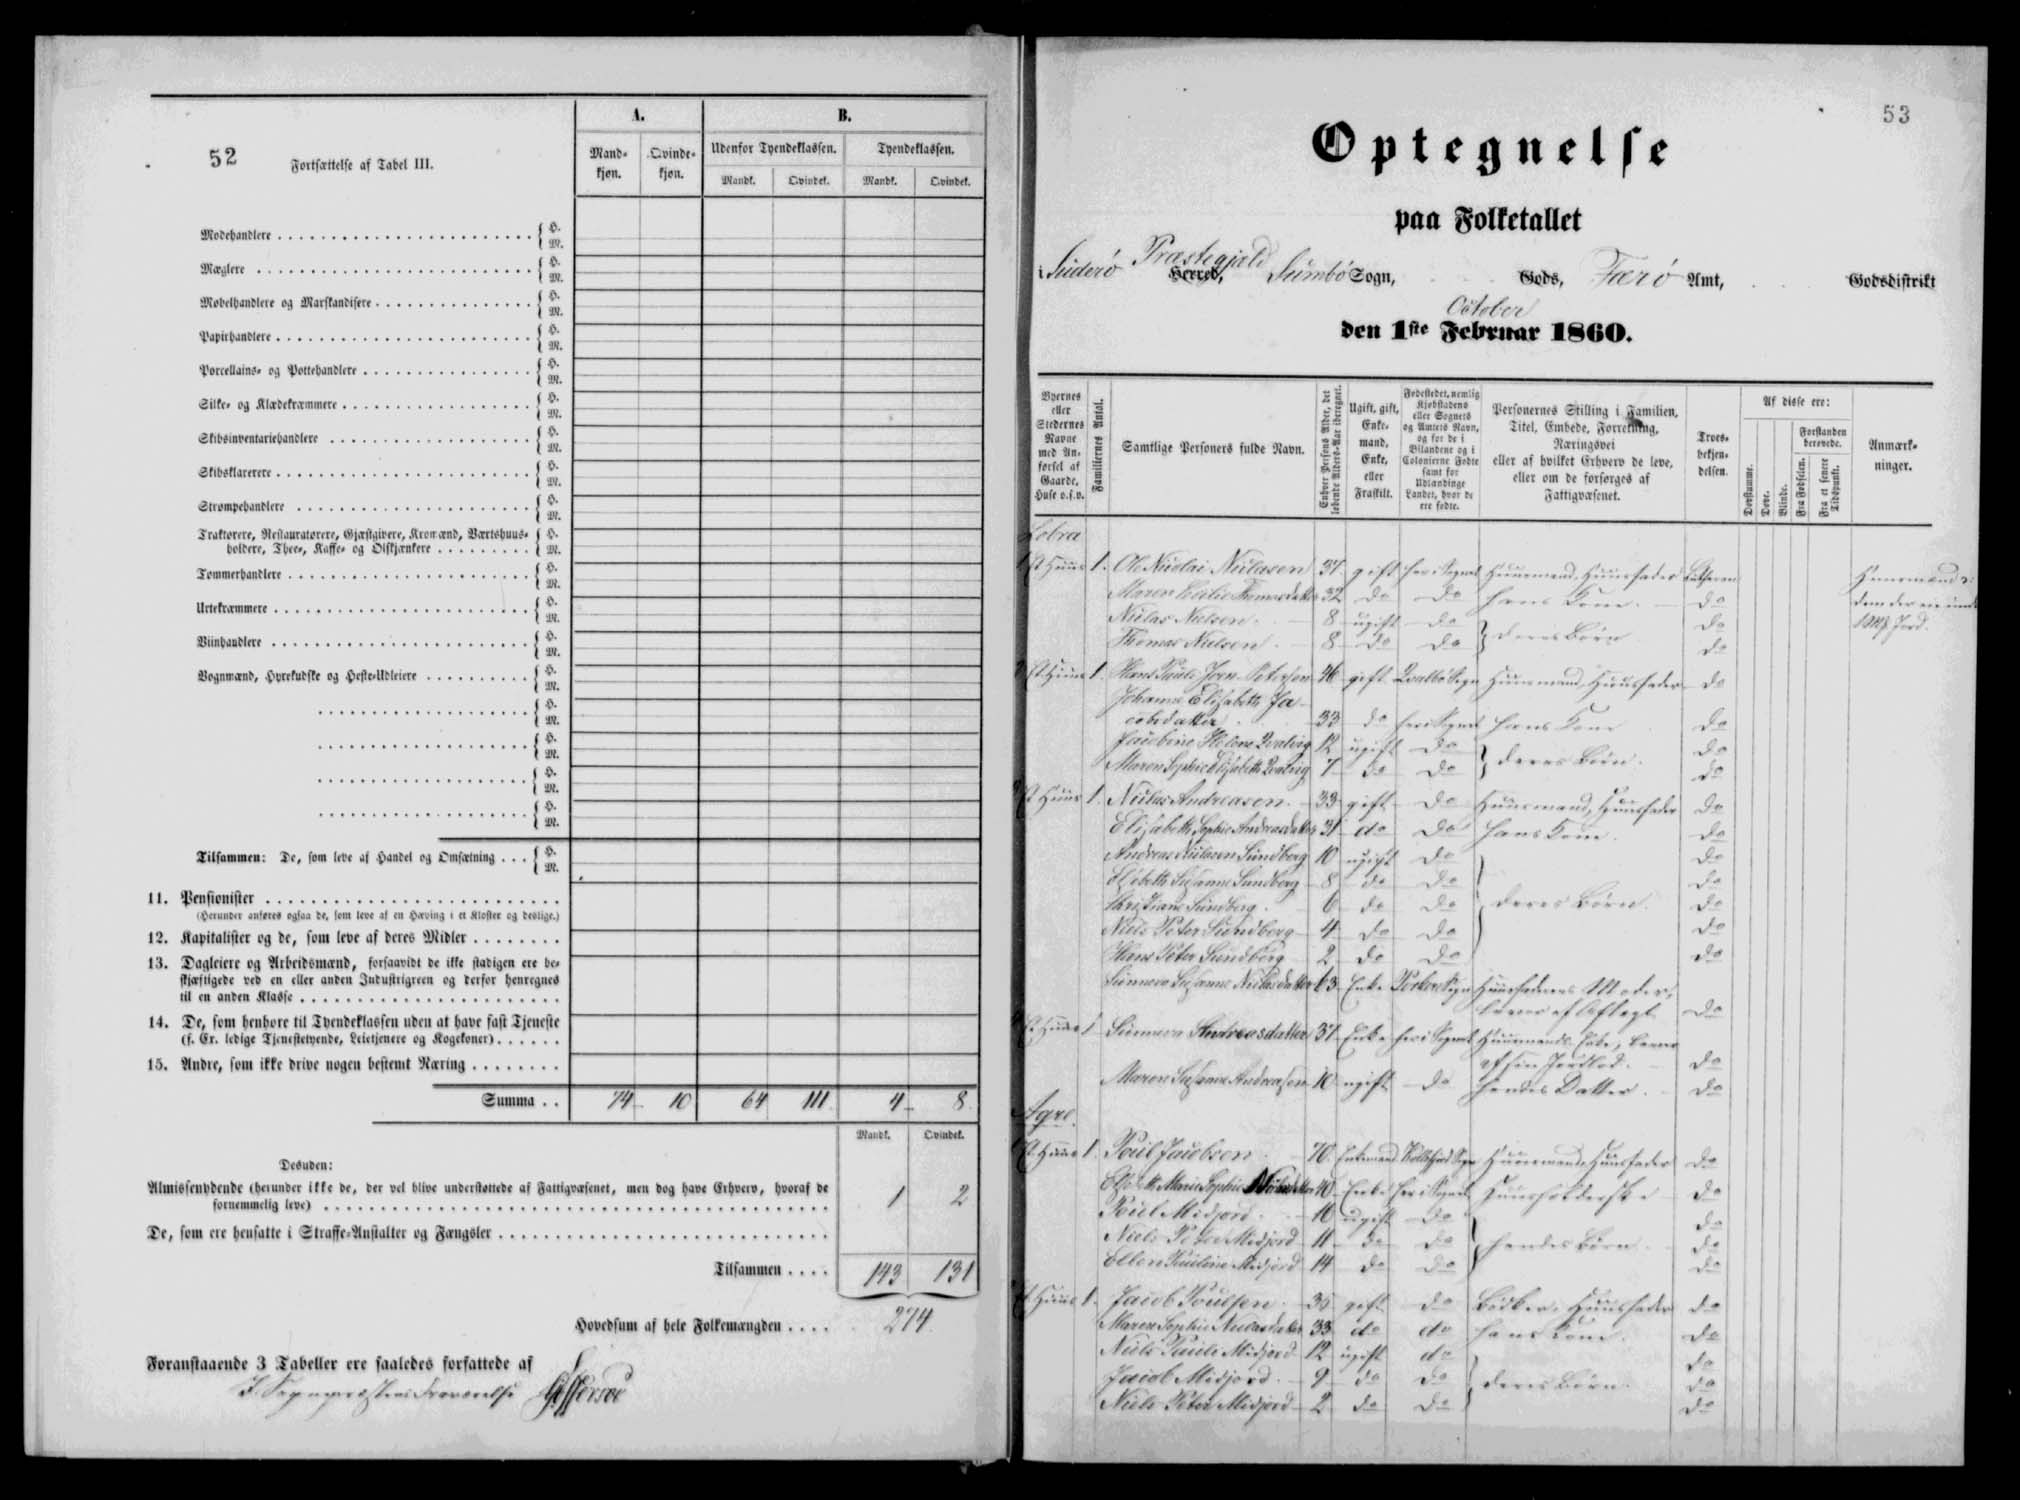 52
Fortsættelse af Tabel III.
A.
B.
Mand-
kjøn.
Qvinde-
kjøn.
Udenfor Tyendeklassen.
Tyendeklassen.
Mandk.
Qvindek.
Mandk.
Qvindek.
Modehandlere
H.
M.
Mæglere
H.
M.
Møbelhandlere og Marskandisere
H.
M.
Papirhandlere
H.
M.
Porcellains- og Pottehandlere
H.
M.
Silke- og Klædekræmmere
H.
M.
Skibsinventariehandlere
H.
M.
Skibsklarerere
H.
M.
Strømpehandlere
H.
M.
Traktører, Restauratører, Gjæstgivere, Kromænd, Værtshuus-
holdere, Thee-, Kaffe- og Ølskjænkere
H.
M.
Tømmerhandlere
H.
M.
Urtekræmmere
H.
M.
Viinhandlere
H.
M.
Vognmænd, Hyrekudske og Heste-Udleiere
H.
M.
H.
M.
H.
M.
H.
M.
H.
M.
Tilsammen: De, som leve af Handel og Omsætning
H.
M.
11. Pensionister
(Herunder anføres ogsaa de, som leve af en Hæving i et Kloster og deslige.)
12. Kapitalister og de, som leve af deres Midler
13. Dagleiere og Arbeidsmænd, forsaavidt de ikke stadigen ere be-
skjæftigede ved en eller anden Industrigreen og derfor henregnes
til en anden Klasse
14. De, som henhøre til Tyendeklassen uden at have fast Tjeneste
(f. Ex. ledige Tjenestetyende, Leietjenere og Kogekoner)
15. Andre, som ikke drive nogen bestemt Næring
Summa . . 74 10 64 111 4 8
Mandk. Qvindek.
Desuden:
Almissenydende (herunder ikke de, der vel blive understøttede af Fattigvæsenet, men dog have Erhverv, hvoraf de
fornemmelig leve) 1 2
De, som ere hensatte i Straffe-Anstalter og Fængsler
Tilsammen . . . . 143 131
Hovedsum af hele Folkemængden . . . . 274
Foranstaaende 3 Tabeller ere saaledes forfattede af
I Sognepræstens Fraværelse
53
Optegnelse
paa Folketallet
i Suderø Præstegjæld Herred, Sumbø Sogn, Gods, Færø Amt, Godsdistrikt
October
den 1ste Februar 1860.
Byernes
eller
Stedernes
Navne
med An-
førsel af
Gaarde,
Huse o.s.v.
Familiernes Antal.
Samtlige Personers fulde Navn.
Enhver Persons Alder, det
løbende Alders-Aar iberegnet.
Ugift, gift,
Enke-
mand,
Enke,
eller
Fraskilt.
Fødestedet, nemlig
Kjøbstadens
eller Sognets
og Amtets Navn,
og for de i
Bilandene og i
Colonierne Fødte
samt for
Udlændinge
Landet, hvor de
ere fødte.
Personernes Stilling i Familien,
Titel, Embede, Forretning,
Næringsvei
eller af hvilket Erhverv de leve,
eller om de forsørges af
Fattigvæsenet.
Troes-
bekjen-
delsen.
Af disse ere:
Døvstumme.
Døve.
Blinde.
Forstanden
berøvede.
Fra Fødselen.
Fra et senere
Tidspunkt.
Anmærk-
ninger.
Lobra
Et Huus 1. Ole Nicolai Niclasen 37 gift her i Sognet Huusmand, Huusfader Lutheran Huusmand
Maren Thomasdatter 32 do do hans Kone do
Niclas Nielsen 8 ugift do do
Thomas Nielsen 8 do do deres Børn do
Jord.
Et Huus 1. Hans Pauli Joen Petersen 46 gift Qvalbø Sogn Huusmand, Huusfader do
Johanne Elisabeth Ja-
cobsdatter 33 do her i Sognet hans Kone do
Jacobine Helene Qvalvig 12 ugift do do
Maren Sophie Elisabeth Qvalvig 7 do do deres Børn do
Et Huus 1. Niclas Andreasen 33 gift do Huusmand, Huusfader do
Elisabeth Sophie Andreasdatter 31 do do hans Kone do
Andreas Niclasen Sundberg 10 ugift do do
Elsebeth Susanne Sundberg 8 do do do
Christiane Sundberg 6 do do deres Børn do
Niels Peter Sundberg 4 do do do
Hans Peter Sundberg 2 do do do
Sunneva Susanne Niclasdatter 63 Enke Porkere Sogn Huusfaderens Moder,
lever af Aftægt do
Et Huus 1 Sunneva Andreasdatter 37 Enke her i Sognet Huusmands Enke, lever
af sin Jordlod do
Maren Susanne Andreasen 10 ugift do hendes Datter do
Agre
Et Huus 1. Poul Jacobsen 70 Enkemand Sogn Huusmand, Huusfader do
Elsebeth Marie Sophie 40 Enke her i Sognet Huusholderske do
Poul Midjord 16 ugift do do
Niels Peter Midjord 11 do do hendes Børn do
Ellen Pauline Midjord 14 do do do
Et Huus 1. Jacob Poulsen 35 gift do Bødker, Huusfader do
Maren Sophie Niclasdatter 33 do do hans Kone do
Niels Pauli Midjord 12 ugift do do
Jacob Midjord 9 do do deres Børn do
Niels Peter Midjord 2 do do do